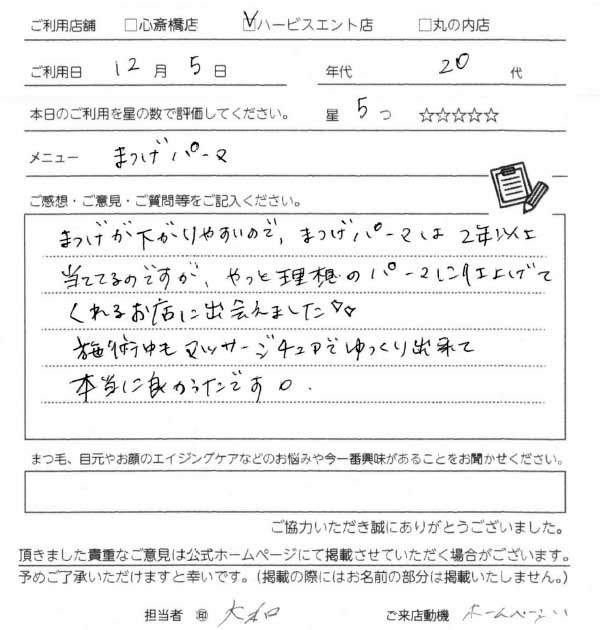 ご利用店舗 □心斎橋店 ☑ハービスエント店 □丸の内店
ご利用日 12月5日 年代 20代
本日のご利用を星の数で評価してください。 星 5つ ☆☆☆☆☆
メニュー まつげパーマ
ご感想・ご意見・ご質問等をご記入ください。
まつげが下がりやすいので、まつげパーマは2年以上
当ててるのですが、やっと理想のパーマに仕上げて
くれるお店に出会えました♡♡
施術中もマッサージチェアでゆっくり出来て
本当に良かったです。
まつ毛、目元やお顔のエイジングケアなどのお悩みや今一番興味があることをお聞かせください。
ご協力いただき誠にありがとうございました。
頂きました貴重なご意見は公式ホームページにて掲載させていただく場合がございます。
予めご了承いただけますと幸いです。(掲載の際にはお名前の部分は掲載いたしません。)
担当者 ㊞ 大和 ご来店動機 ホームページ